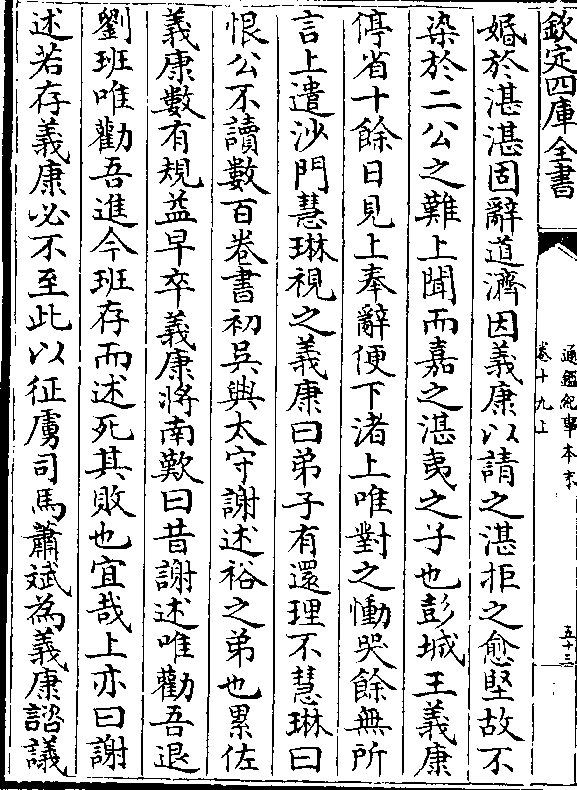 欽定四庫全書
通鑑紀事本末
卷十九上
五十三
婚於湛湛固辭道濟因義康以請之湛拒之愈堅故不
染於二公之難上聞而嘉之湛夷之子也彭城王義康
停省十餘日見上奉辭便下渚上唯對之慟哭餘無所
言上遣沙門慧琳視之義康曰弟子有還理不慧琳曰
恨公不讀數百卷書初吳興太守謝述裕之弟也累佐
義康數有規益早卒義康將南歎曰昔謝述唯勸吾退
劉班唯勸吾進今班存而述死其敗也宜哉上亦曰謝
述若存義康必不至此以征虜司馬蕭斌為義康諮議